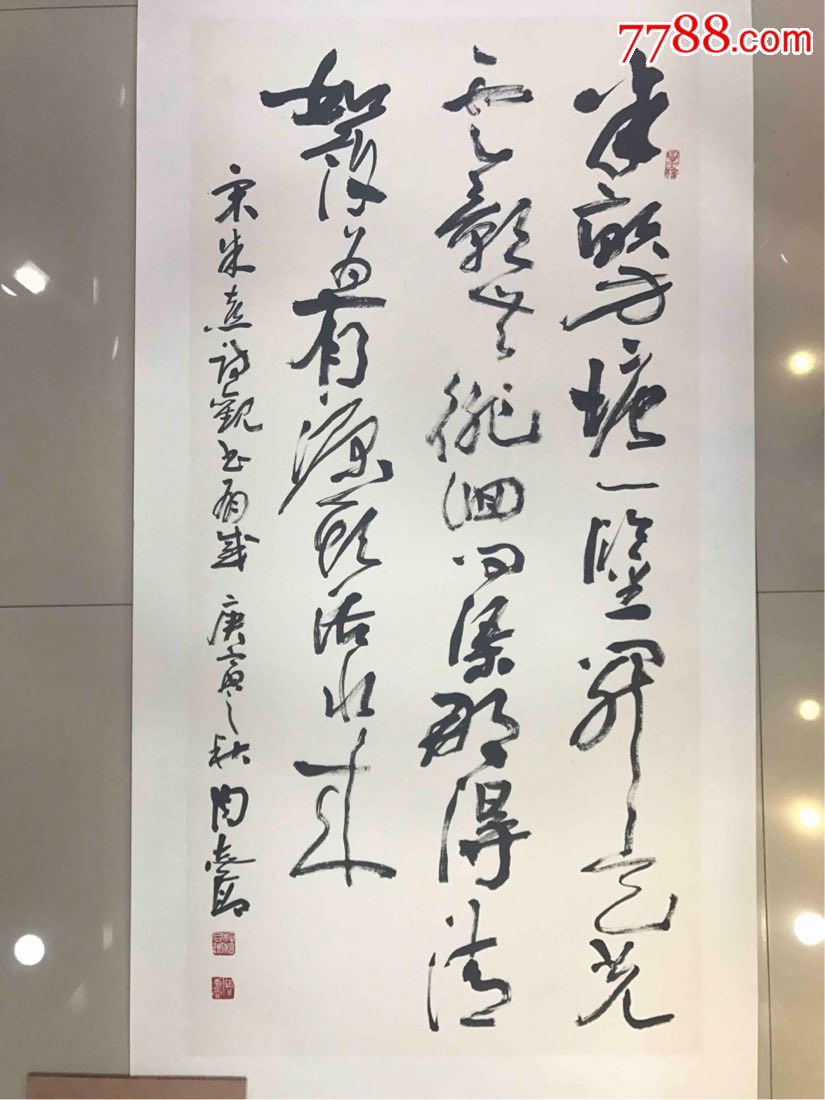 7788.com
半畝方塘一鑒開天光
雲影共徘徊問渠那得清
如許為有源頭活水來
宋朱熹詩觀書有感 庚寅之秋 周